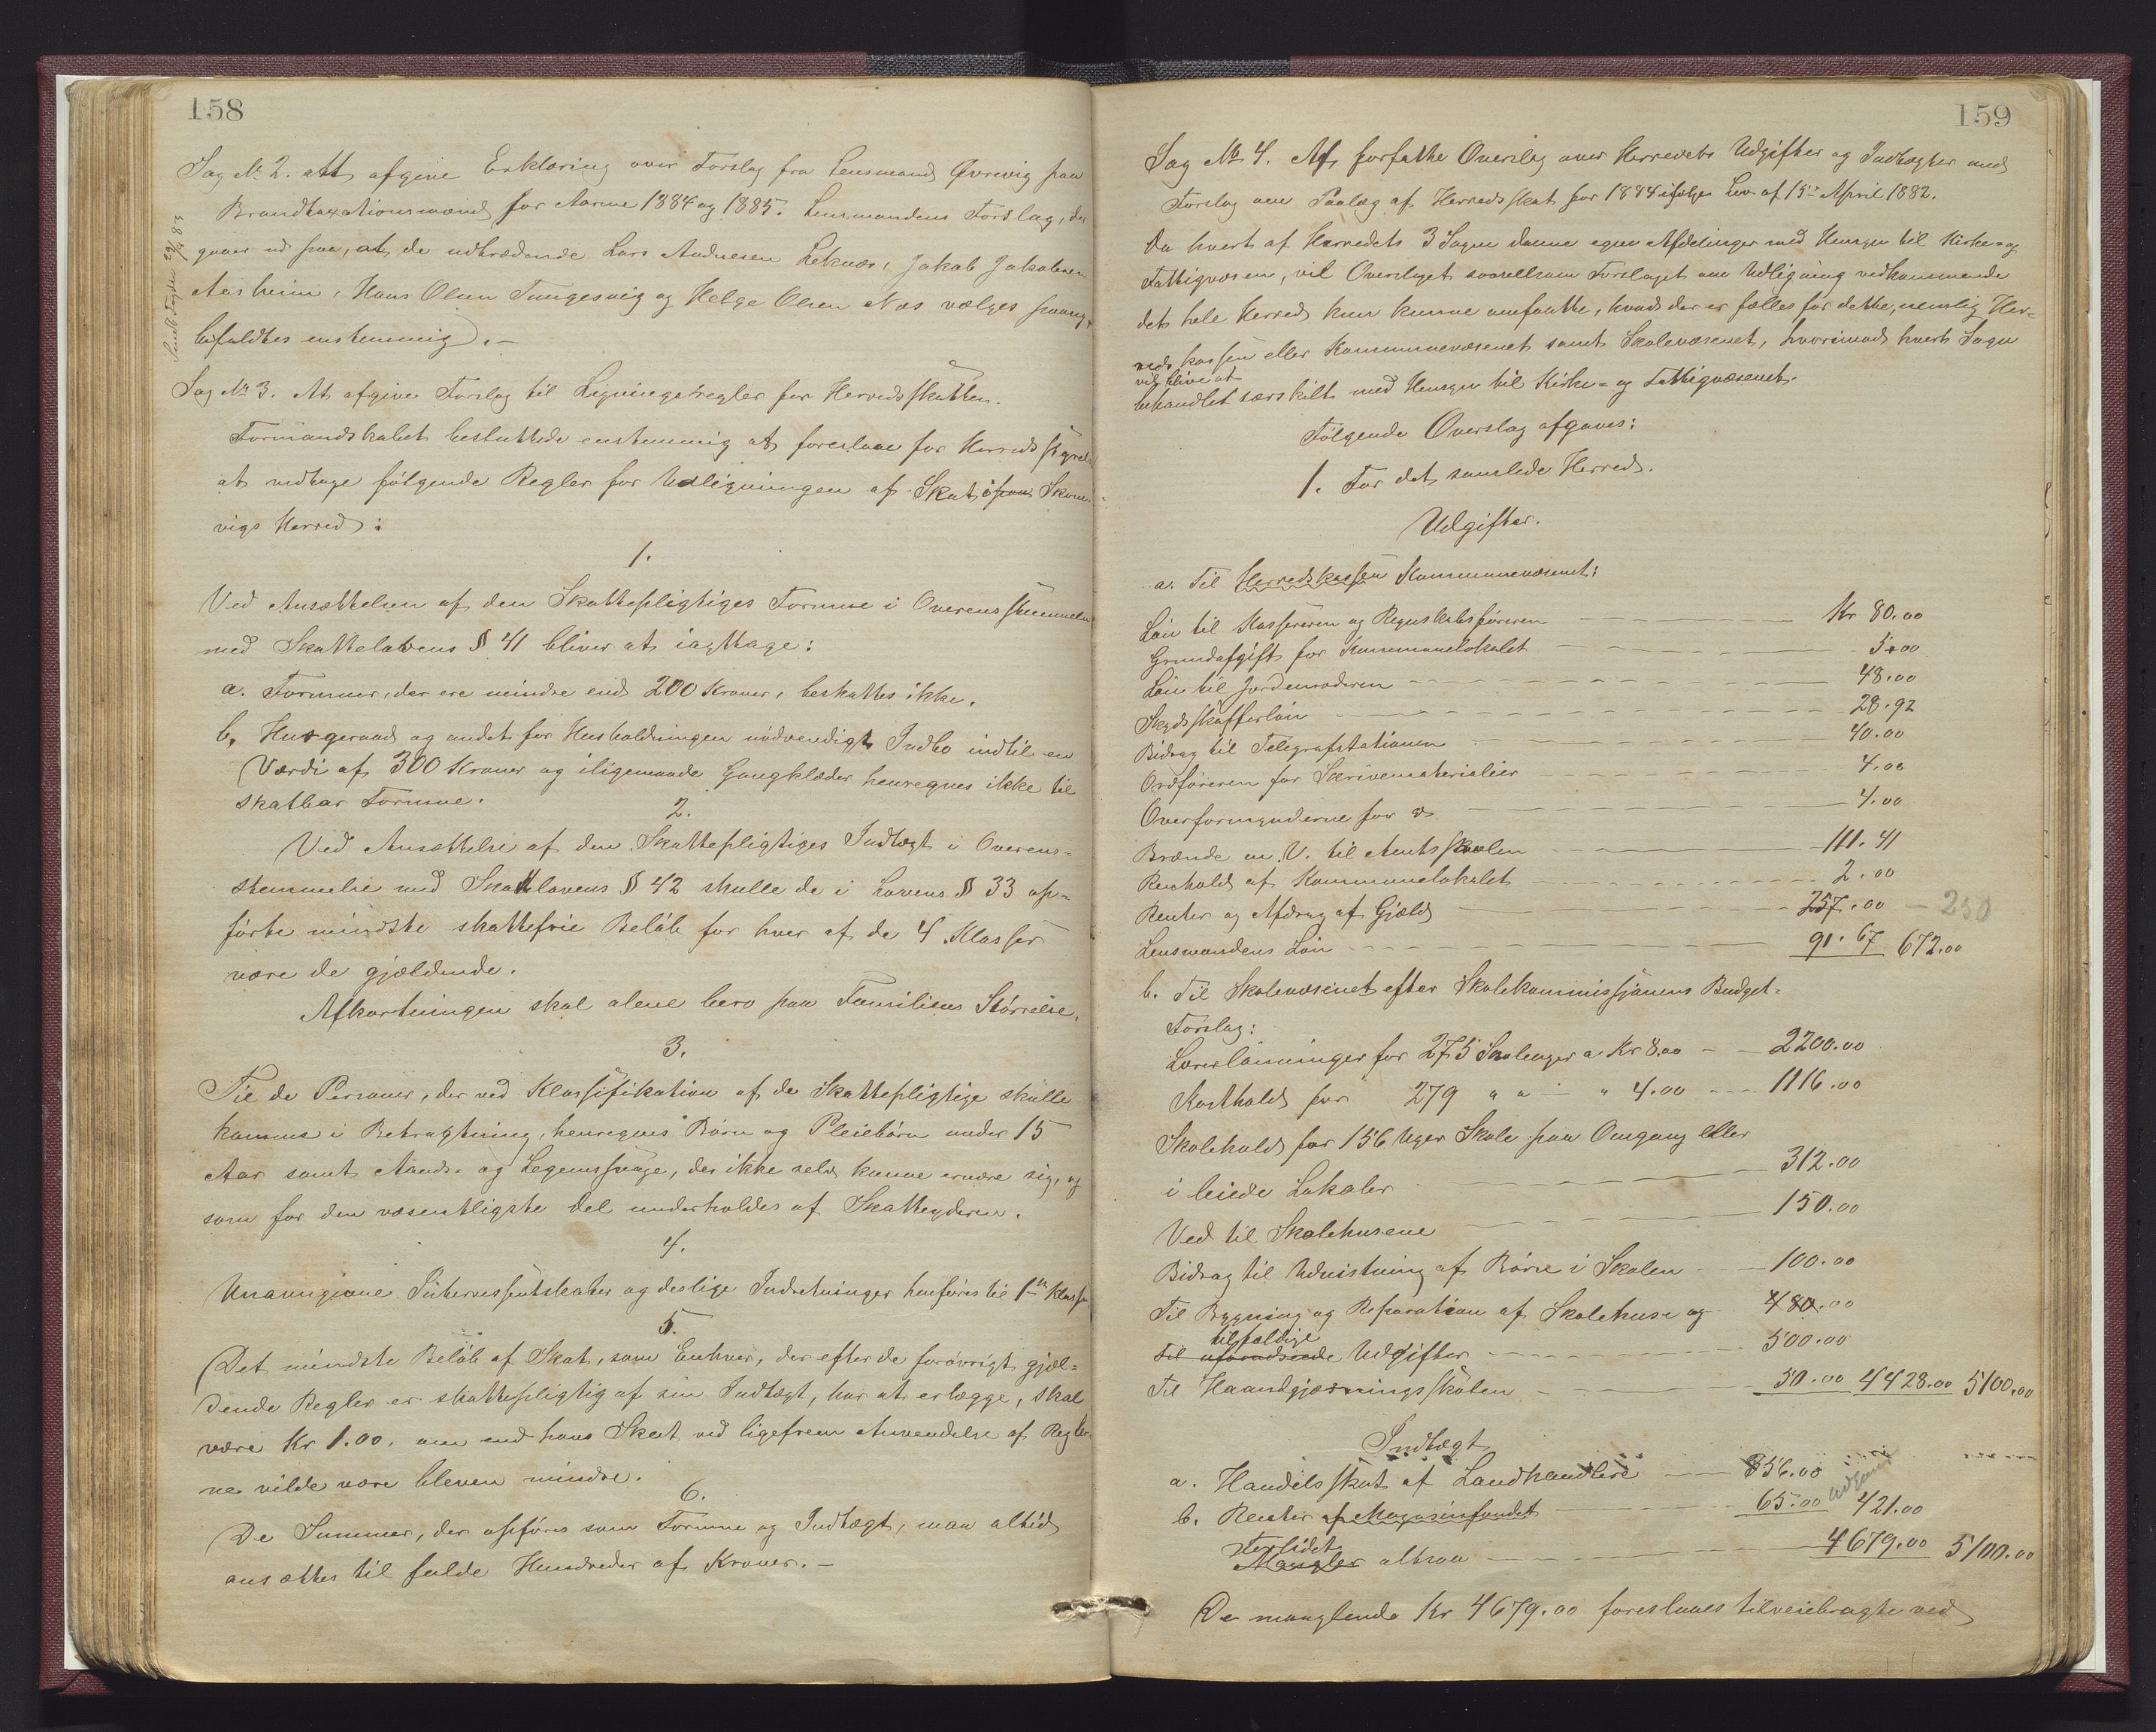 158
Sag No 2. att afgive Erklæring over Forslag fra Lensmand Øvrevig paa
Brandtaxationsmænd for Aarene 1884 og 1885. Lensmandens Forslag, der
gaaer ud paa, at de udtrædende Lars Andersen Leknæs, Jakob Jakobsen
Aarheim, Hans Olsen Tungesvig og Helge Olsen Næs vælges paany,
befaldtes enstemmig. –
Sag No 3. At afgive Forslag til Ligningsregler for Herredsskatten.
Formandskabet besluttede enstemmig at foreslaae for Herredsstyrelsen
at vedtage følgende Regler for Udligningen af Skat i Skone-
vigs Herred:
1.
Ved Ansættelsen af den Skattepligtiges Formue i Overensstemmelse
med Skattelovens § 41 bliver at iagttage:
a. Formuer, der ere mindre end 200 Kroner, beskattes ikke.
b, Husgeraad og andet for Husholdningen nødvendigt Indbo indtil en
Værdi af 300 Kroner og iligemaade Gangklæder henregnes ikke til
skatbar Formue.
2.
Ved Ansættelse af den Skattepligtiges Indtægt i Overens=
stemmelse med Skattelovens § 42 skulle de i Lovens § 33 op=
førte mindste skattefrie Beløb for hver af de 4 Klasser
være de gjældende.
Afkortningen skal alene bero paa Familiens Størrelse.
3.
Til de Personer, der ved Klassifikation af de Skattepligtige skulle
komme i Betragtning, henregnes Børn og Pleiebørn under 15
Aar samt Aands- og Legemssvage, der ikke selv kunne ernære sig, og
som for den væsentligste Del underholdes af Skatteyderen.
4.
Unavngivne Interessentskaber og deslige Indretninger henføres til 1ste Klasse
5.
Det mindste Beløb af Skat, som Enhver, der efter de forøvrigt gjæl=
dende Regler er skattepligtig af sin Indtægt, har at erlægge, skal
være Kr 1.00, om end hans Skat ved ligefrem Anvendelse af Regler-
ne vilde være bleven mindre.
6.
De Summer, der opføres som Formue og Indtægt, maa altid
ansættes til fulde Hundreder af Kroner. –
159
Sag No 4. At forfatte Overslag over Herredets Udgifter og Indtægter med
Forslag om Paalæg af Herredsskat for 1884 ifølge Lov af 15de April 1882.
Da hvert af Herredets 3 Sogne danne egne Afdelinger med Hensyn til Kirke= og
Fattigvæsen, vil Overslaget saavelsom Forslaget om Udligning vedkommende
det hele Herred kun kunne omfatte, hvad der er fælles for dette, nemlig Her=
redskassen eller Kommunevæsenet samt Skolevæsenet, hvorimod hvert Sogn
vil blive at
behandlet særskilt med Hensyn til Kirke= og Fattigvæsenet.
Følgende Overslag afgaves:
1. For det samlede Herred.
Udgifter.
a. Til Herredskassen Kommunevæsenet:
Løn til Kassereren og Regnskabsføreren Kr 80.00
Grundafgift for Kommunelokalet 5.00
Løn til Jordemoderen 48.00
Skydsskafferløn 28.92
Bidrag til Telegrafstationen 40.00
Ordføreren for Skrivematerialier 4.00
Overformynderne for do 4.00
Brænde m. V. til Amtsskolen 111.41
Renhold af Kommunelokalet 2.00
Renter og Afdrag af Gjæld 257.00 – 250
Lensmandens Løn 91.67 672.00
b. Til Skolevæsenet efter Skolekommissjonens Budget=
Forslag:
Lærerlønninger for 275 Skoleuger a Kr 8.00 – 2200.00
Kosthold for 279 " a – " 4.00 1116.00
Skolehold for 156 Uger Skole paa Omgang eller
i leiede Lokaler 312.00
Ved til Skolehusene 150.00
Bidrag til Undervisning af Børn i Skolen 100.00
Til Bygning og Reparation af Skolehuse og 480.00
tilfældige
til uforudseede Udgifter 500.00
Til Haandgjærningsskolen 50.00 4428.00 5100.00
Indtægt
a. Handelsskat af Landhandlere 356.00
b. Renter af Magasinfondet 65.00 421.00
Mangler altsaa 4679.00 5100.00
De manglende Kr 4679.00 foreslaaes tilveiebragte ved